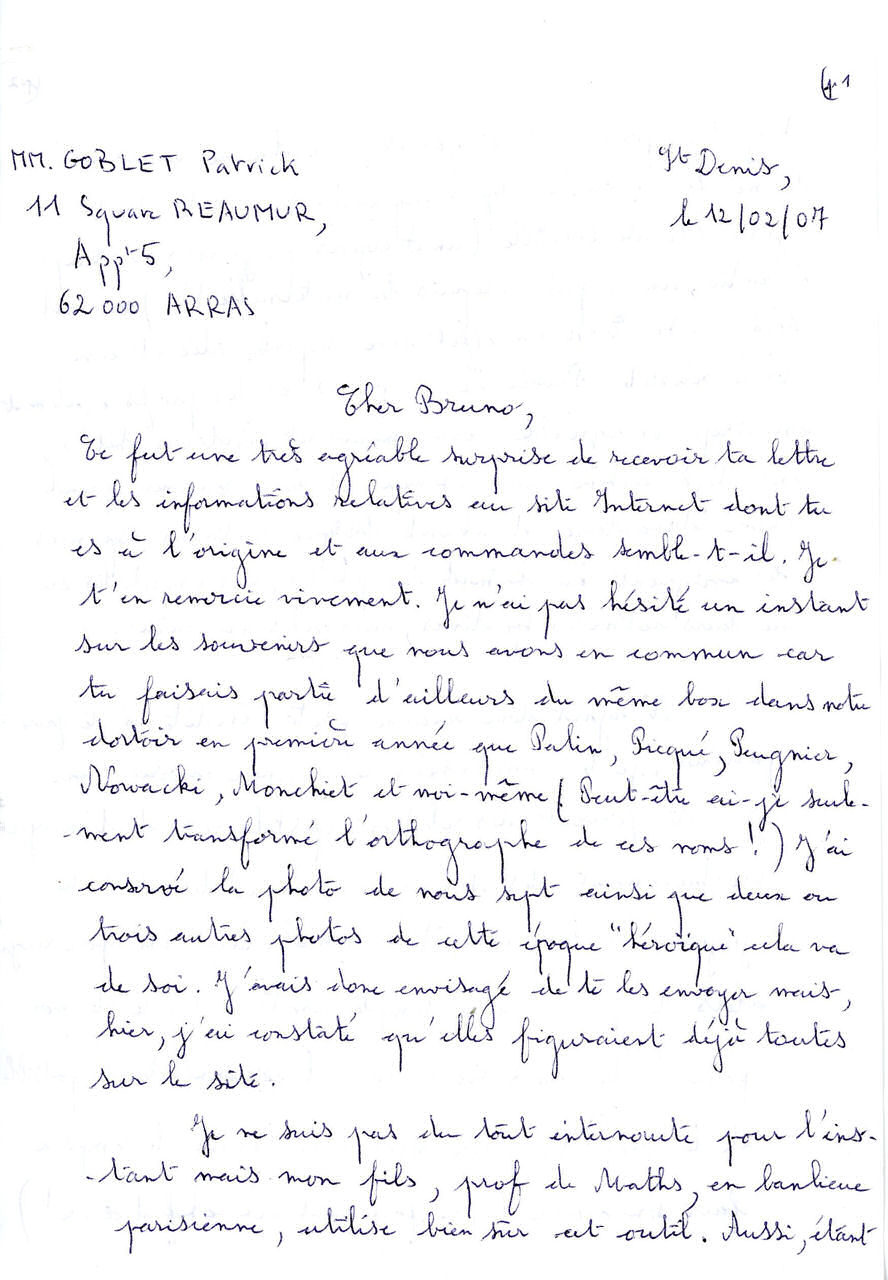 p1
MM. GOBLET Patrick
St Denis,
11 Square REAUMUR,
le 12/02/07
Appt 5,
62000 ARRAS
Cher Bruno,
Ce fut une très agréable surprise de recevoir ta lettre
et les informations relatives au site Internet dont tu
es à l'origine et aux commandes semble-t-il. Je
t'en remercie vivement. Je n'ai pas hésité un instant
sur les souvenirs que nous avons en commun car
tu faisais partie d'ailleurs du même box dans notre
dortoir en première année que Palin, Picqué, Peugnier,
Nowacki, Monchiet et moi-même (Peut-être ai-je seule-
-ment transformé l'orthographe de ces noms!) J'ai
conservé la photo de nous sept ainsi que deux ou
trois autres photos de cette époque "héroïque" cela va
de soi. J'avais donc envisagé de te les envoyer mais,
hier, j'ai constaté qu'elles figuraient déjà toutes
sur le site.
Je ne suis pas du tout internaute pour l'ins-
-tant mais mon fils, prof de Maths, en banlieue
parisienne, utilise bien sûr cet outil. Aussi, étant